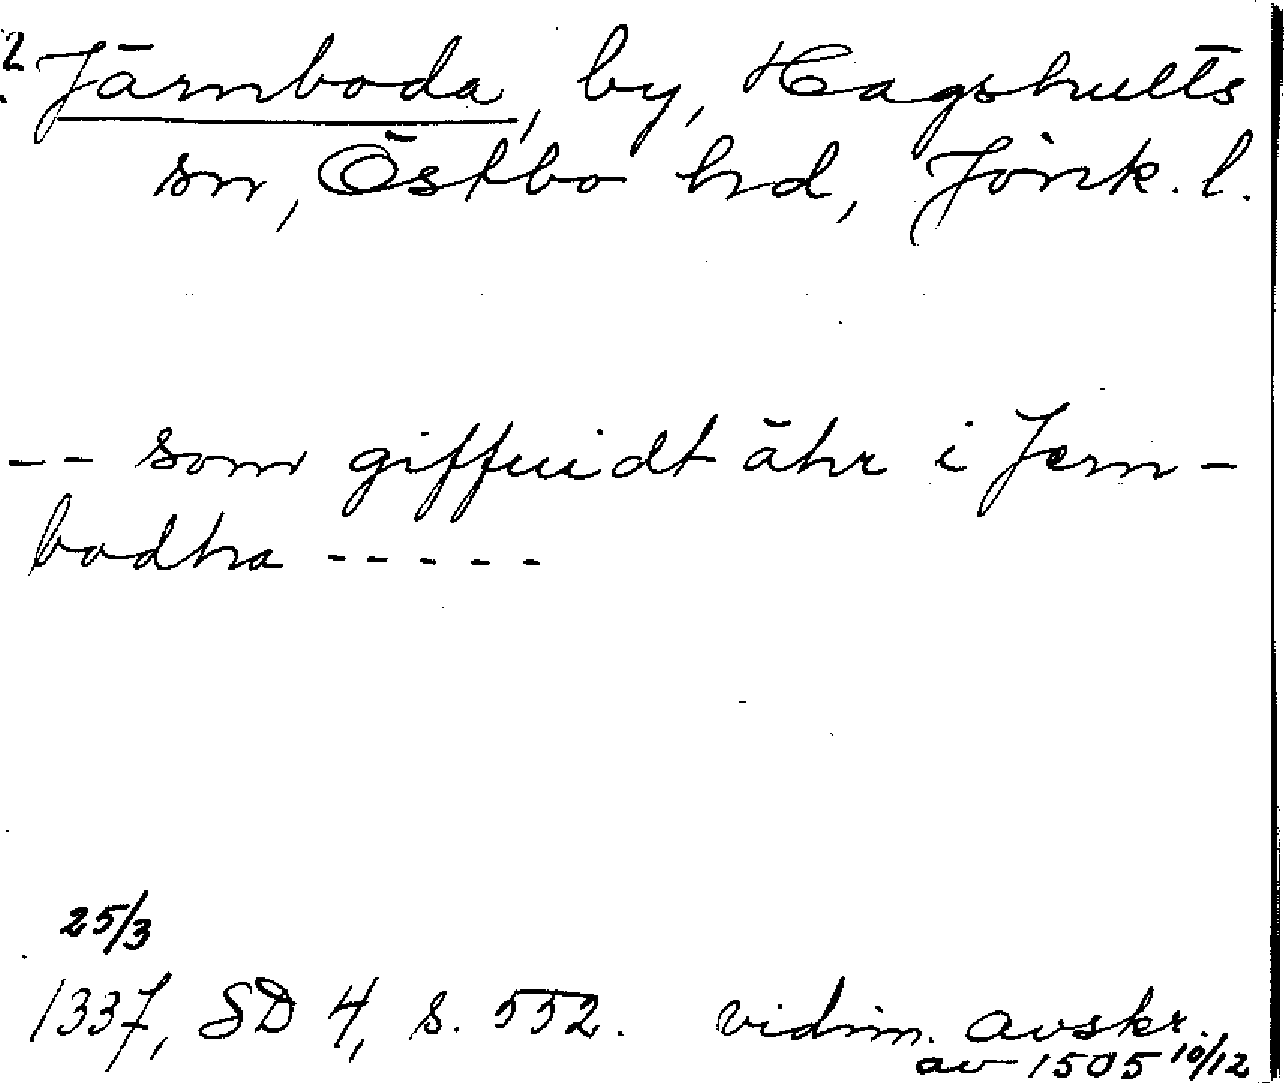 ? Järnboda, by, Hagshults
sn, Östbo hd, Jönk. l.
-- som giffuidt ähr i Jern-
bodha -----
25/3
1337, SD 4, s. 552. vidim. avskr.
av 1505 10/12